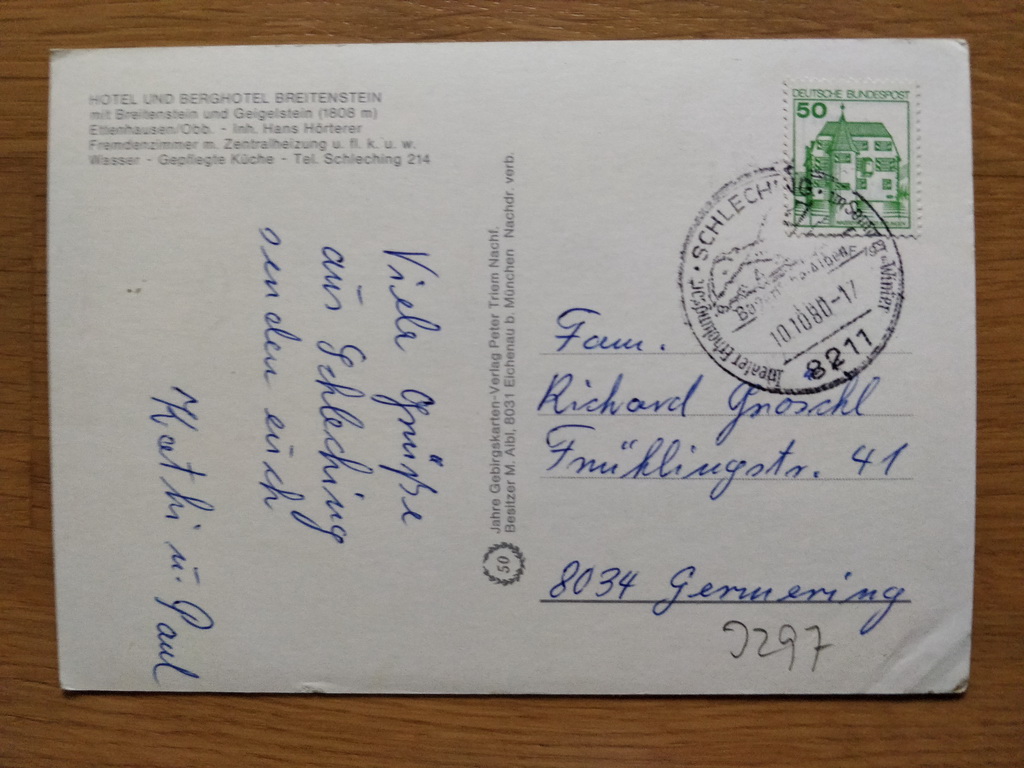 HOTEL UND BERGHOTEL BREITENSTEIN
mit Breitenstein und Geigelstein (1808 m)
Ettenhausen/Obb. - Inh. Hans Hörterer
Fremdenzimmer m. Zentralheizung u. fl. k. u. w.
Wasser - Gepflegte Küche - Tel. Schleching 214
Viele Grüße
aus Schleching
senden euch
Kathi u. Paul
50
Jahre Gebirgskarten-Verlag Peter Triem Nachf.
Besitzer M. Aibl, 8031 Eichenau b. München Nachdr. verb.
DEUTSCHE BUNDESPOST
50
SCHLECHING
Idealer Erholungsort
Winter
10.10.80-17
8211
Fam.
Richard Gröschl
Frühlingstr. 41
8034 Germering
J297